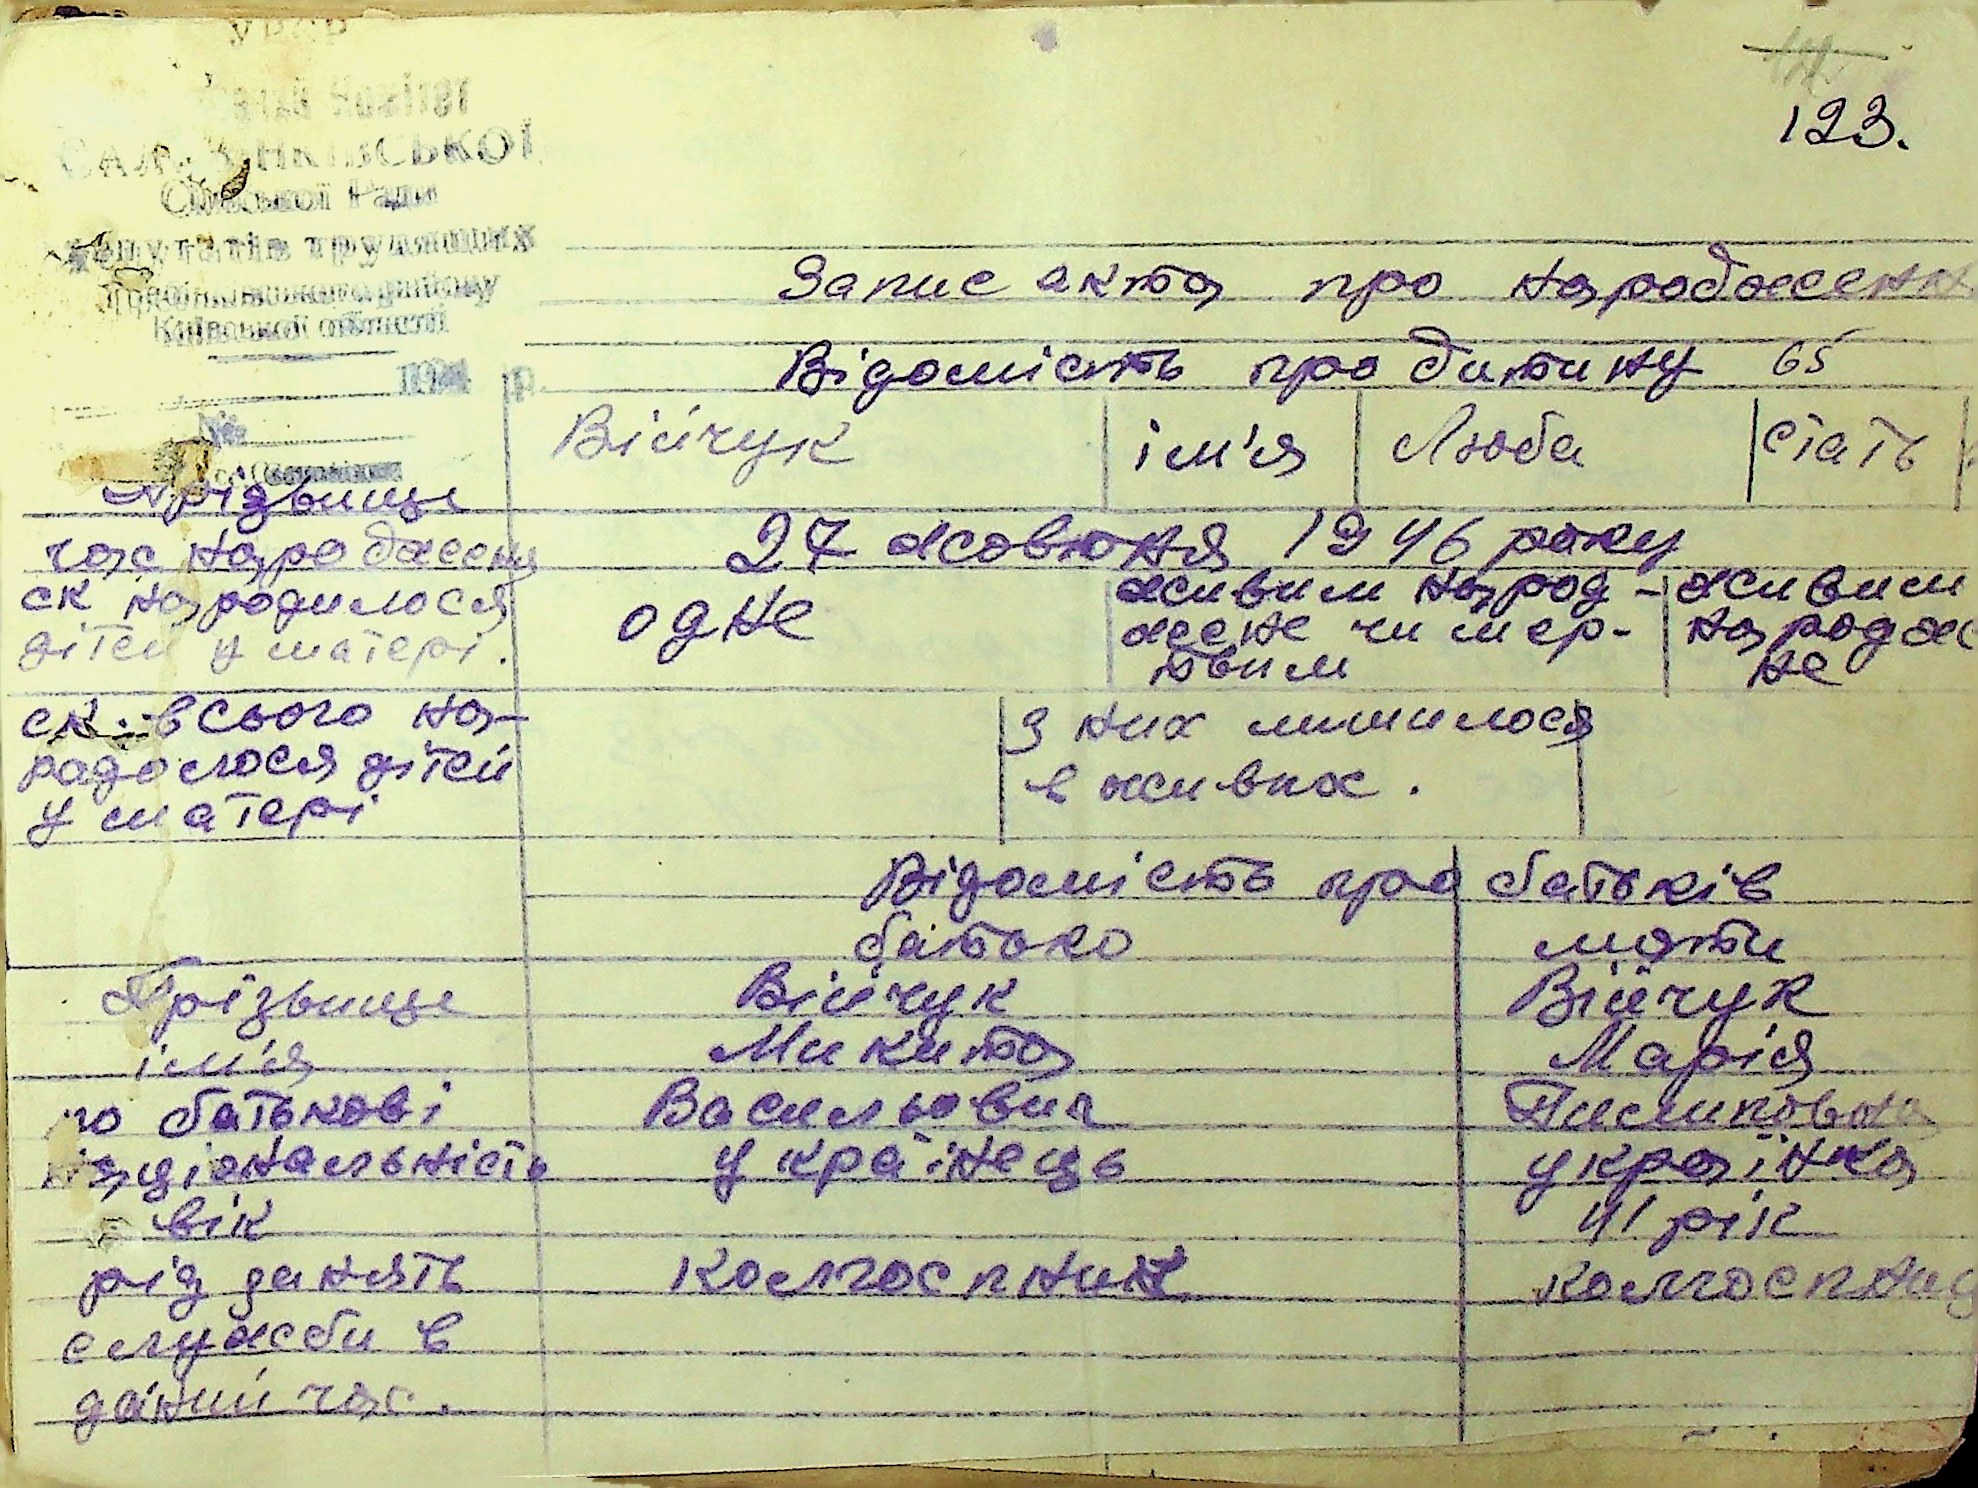 УРСР
СЕЛ. ЗІНЬКІВСЬКОЇ
Сільської Ради
депутатів трудящих
Київської області
194 р.
№
123.
Запис акта про народженн
Відомість про дитину 65
Прізвище Війчук ім'я Люба стать
час народження 27 жовтня 1946 року
ск народилося дітей у матері. одне живим народ-жене чи мер-твим живим народже не
ск. всього на-
родолося дітей
у матері
з них лишилося
в живих.
Відомість про батьків
батько мати
Прізвище Війчук Війчук
ім'я Микита Марія
по батькові Васильович Пилиповна
національність українець українка
вік 41 рік
рід занять колгоспник колгоспниц
служби в
даний час.